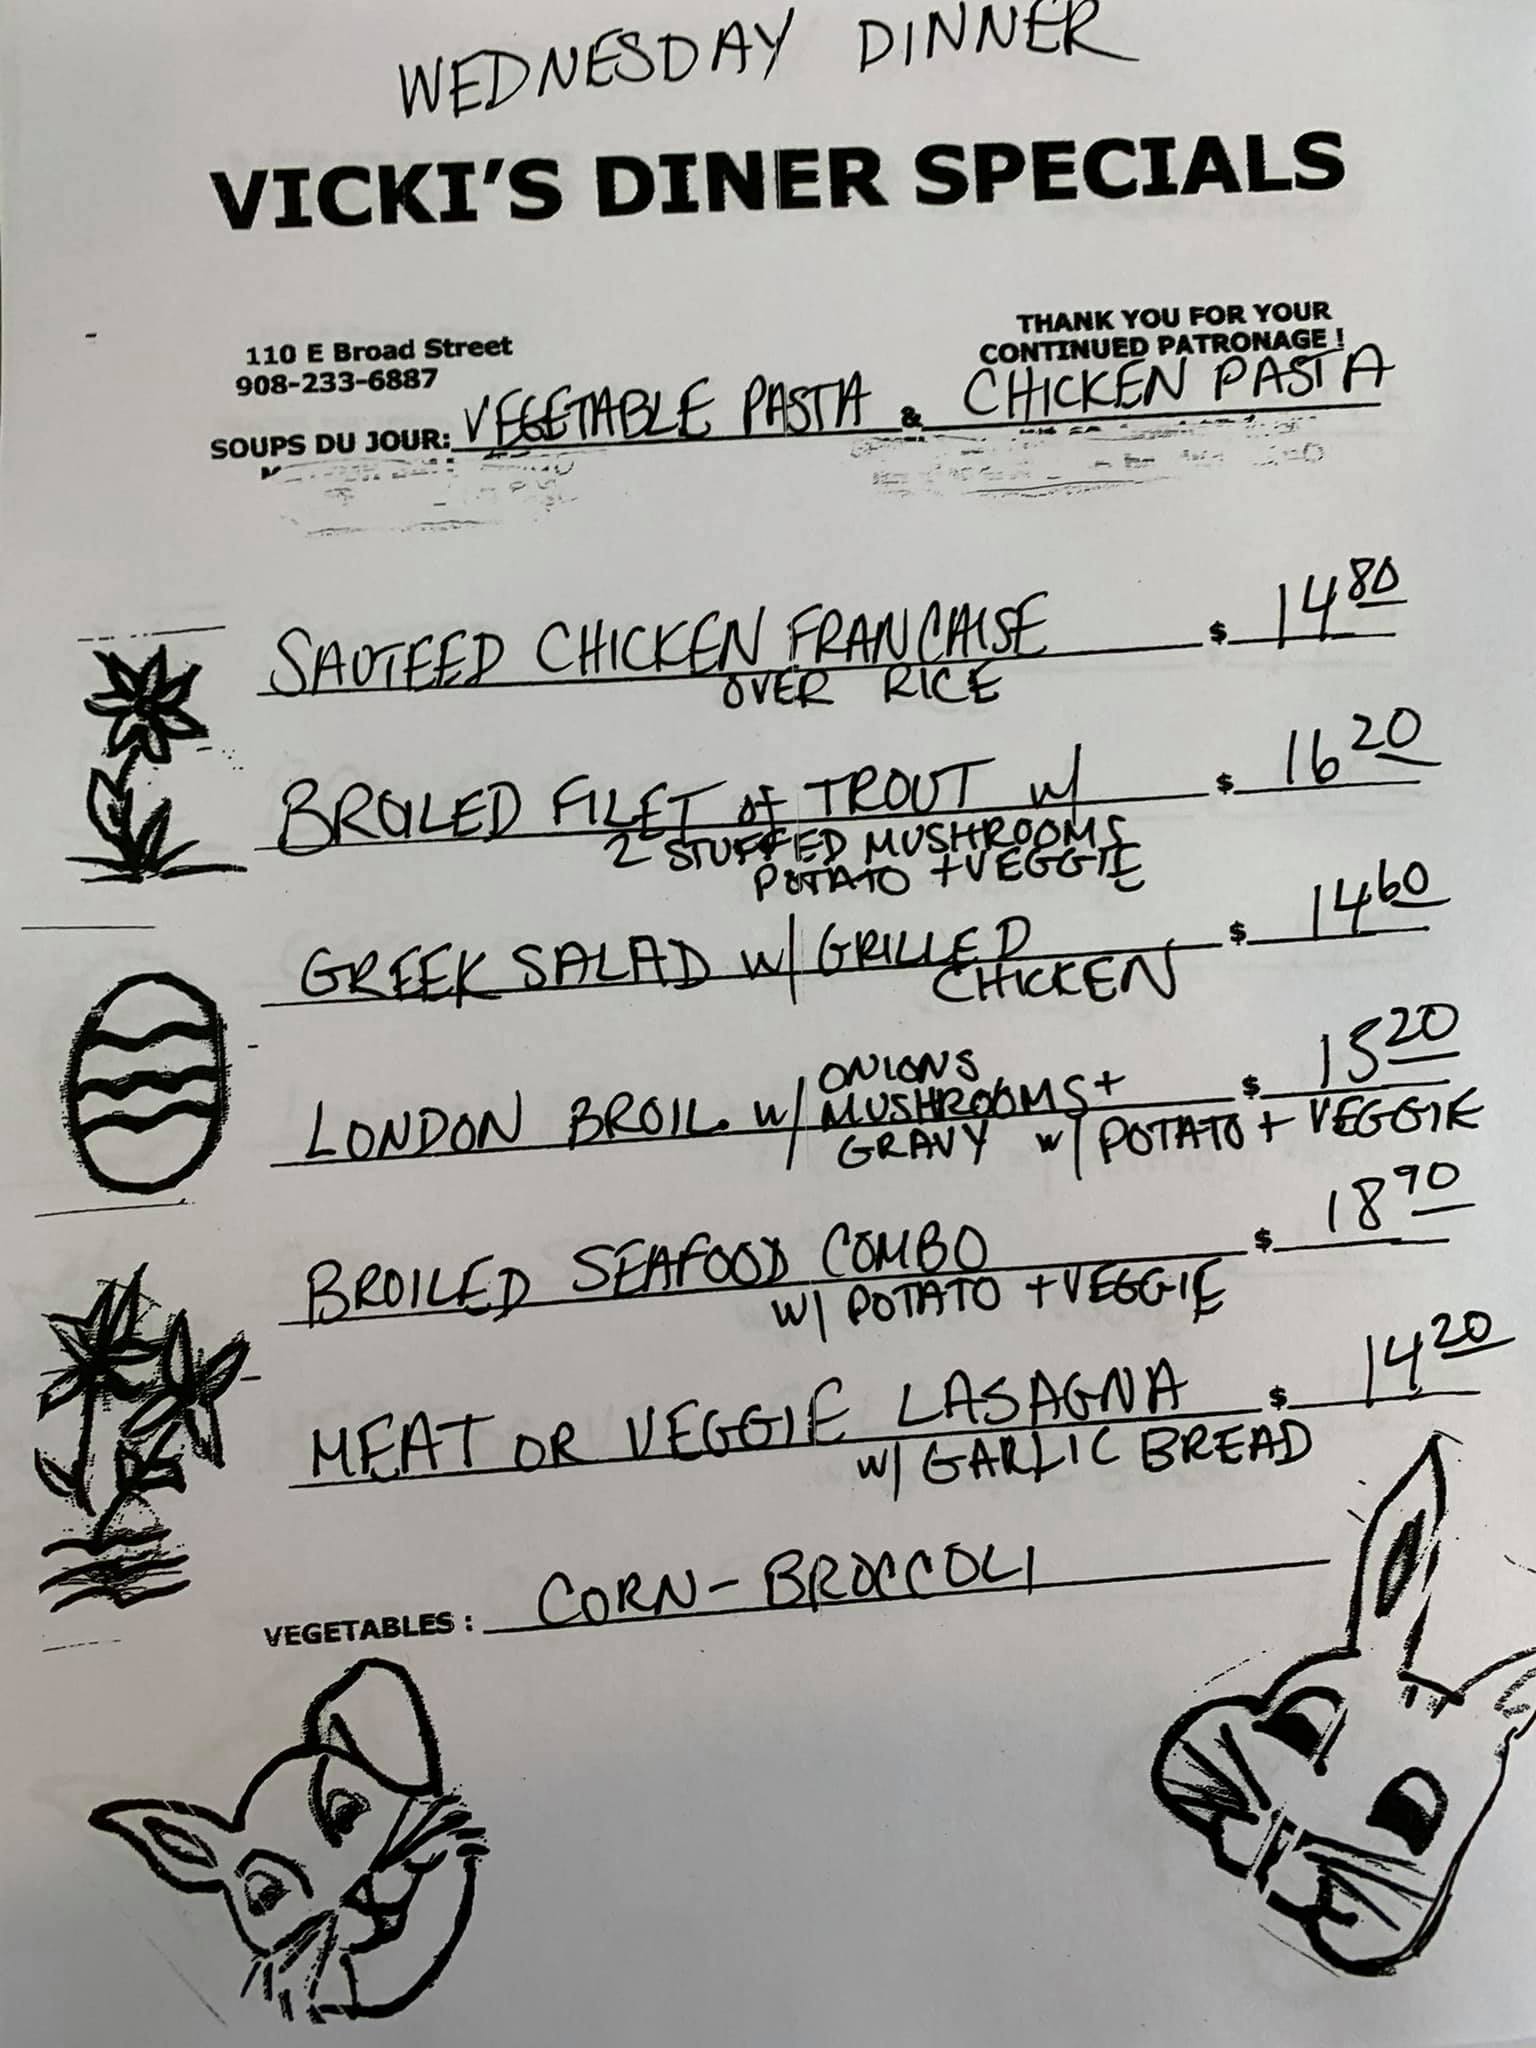 WEDNESDAY DINNER
VICKI'S DINER SPECIALS
110 E Broad Street
908-233-6887
THANK YOU FOR YOUR
CONTINUED PATRONAGE !
SOUPS DU JOUR: VEGETABLE PASTA & CHICKEN PASTA
SAUTEED CHICKEN FRANCAISE $ 14 80
OVER RICE
BROILED FILET of TROUT w/ $ 16 20
2 STUFFED MUSHROOMS
POTATO + VEGGIE
GREEK SALAD w/ GRILLED $ 14 60
CHICKEN
ONIONS
LONDON BROIL w/ MUSHROOMS + $ 15 20
GRAVY w/ POTATO + VEGGIE
BROILED SEAFOOD COMBO $ 18 90
w/ POTATO + VEGGIE
MEAT OR VEGGIE LASAGNA $ 14 20
w/ GARLIC BREAD
VEGETABLES : CORN - BROCCOLI